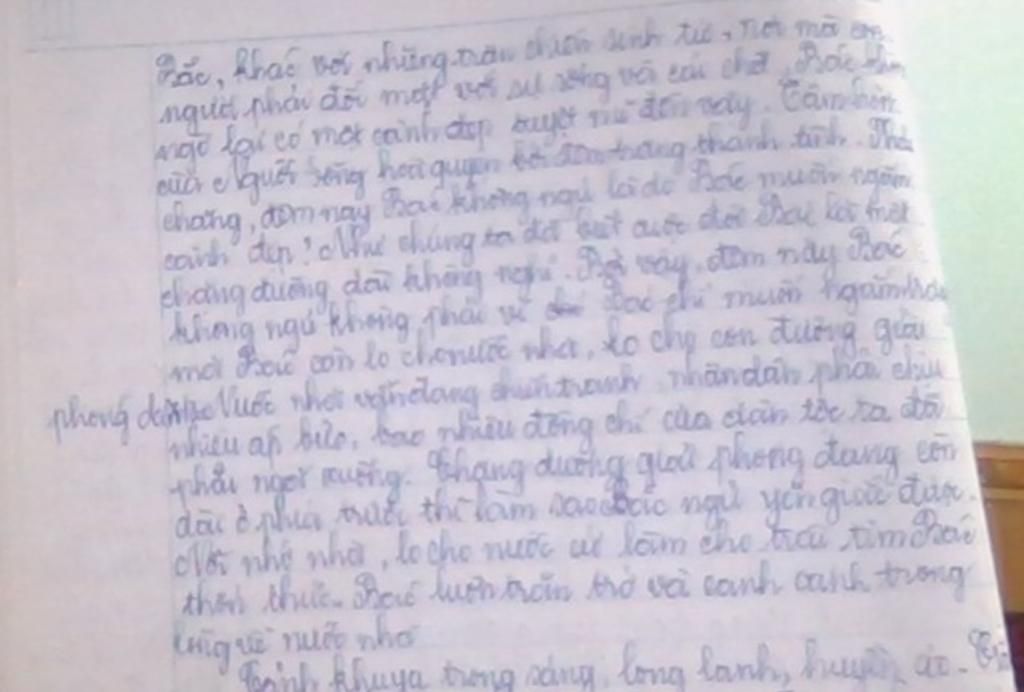 Bắc, khác với những trận chiến sinh tử, nơi mà con
người phải đối mặt với sự sống và cái chết, Bác không
ngờ lại có một cảnh đẹp tuyệt mĩ đến vậy. Tâm hồn
của Người sống hoà quyện với đêm trăng thanh tĩnh. Phải
chăng, đêm nay Bác không ngủ là do Bác muốn ngắm
cảnh đẹp? Như chúng ta đã biết cuộc đời Bác là một
chặng đường dài không nghỉ. Bởi vậy, đêm nay Bác
không ngủ không phải vì Bác chỉ muốn ngắm
mà Bác còn lo cho nước nhà, lo cho con đường giải
phóng dân tộc Nước nhà vẫn đang chiến tranh, nhân dân phải chịu
nhiều áp bức, bao nhiêu đồng chí của dân tộc ta đã
phải ngã xuống. Chặng đường giải phóng đang còn
dài ở phía trước thì làm sao Bác ngủ yên giấc được.
Nỗi nhớ nhà, lo cho nước cứ làm cho trái tim Bác
thổn thức. Bác luôn trăn trở và canh cánh trong
lòng về nước nhà
Cảnh khuya trong sáng, long lanh, huyền ảo.